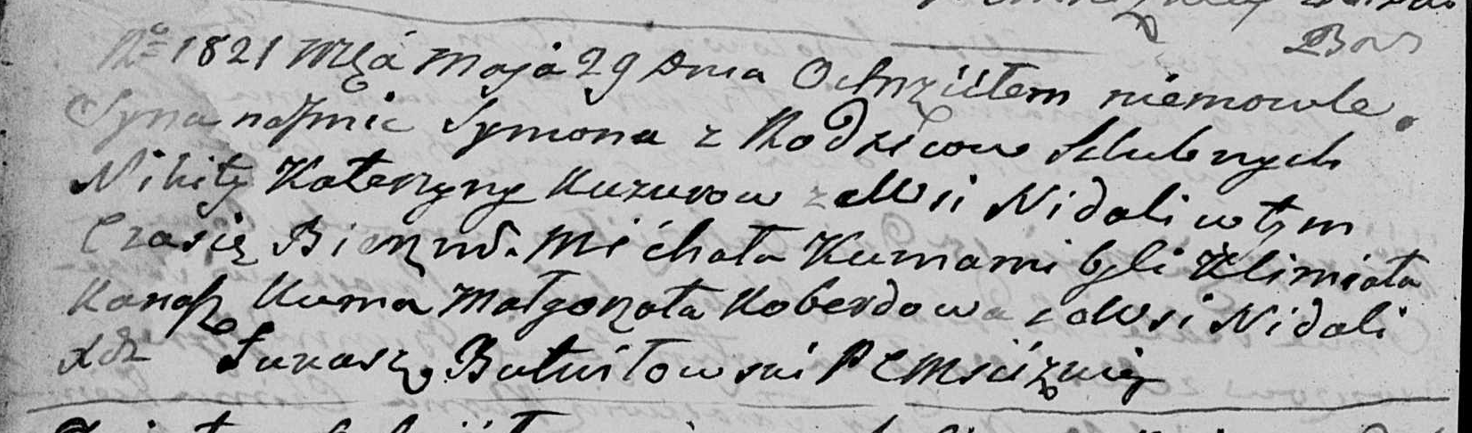 Nº 1821 Mca Maja 29 Dnia Ochrzciłem niemowle.
Syna na Jmie Symona z Rodzicow Szlubnych
Nikity Katerzyny Kuzurow z Wsi Nidali w tym
Czasie Biezmo. Michała Kumami byli Klimiata
Kanasz Kuma Małgorzata Koberdowa z Wsi Nidali
Xdz Łukasz Butwiłowski P C Mscizkiey